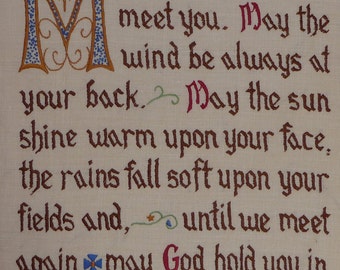 M meet you. May the
wind be always at
your back. May the sun
shine warm upon your face,
the rains fall soft upon your
fields and, until we meet
again may God hold you in